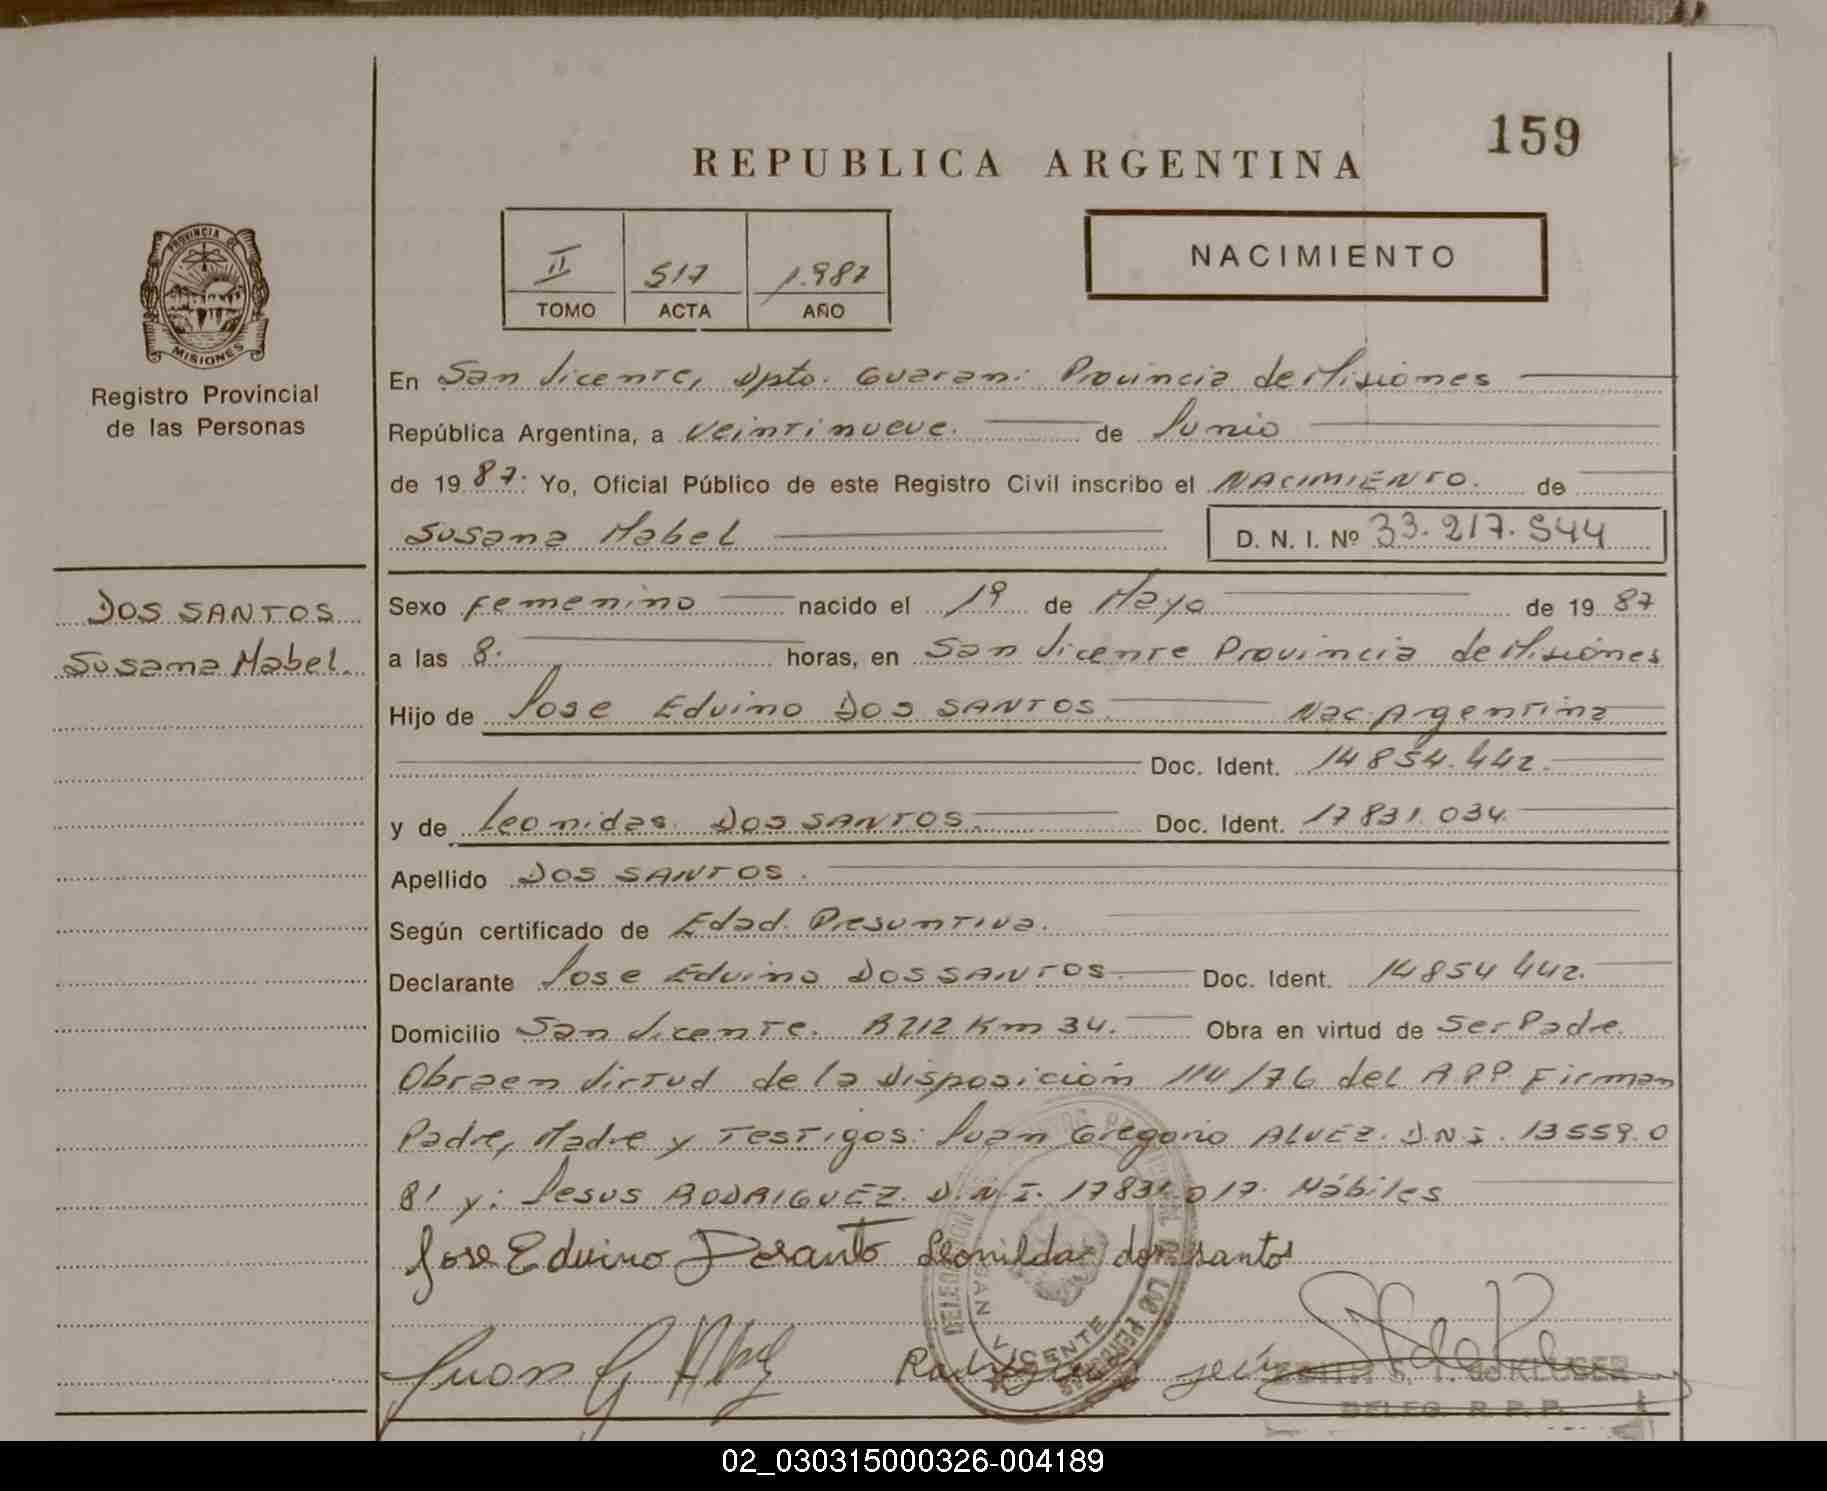 159
REPUBLICA ARGENTINA
II 517 1.987
TOMO ACTA AÑO
NACIMIENTO
PROVINCIA DE
MISIONES
Registro Provincial
de las Personas
En San Vicente, Dpto. Guarani Provincia de Misiones
República Argentina, a veintinueve. de Junio
de 19 87: Yo, Oficial Público de este Registro Civil inscribo el NACIMIENTO. de
Susana Mabel D. N. I. Nº 33.217.544
DOS SANTOS
Susana Mabel.
Sexo femenino nacido el 19 de Mayo de 19 87
a las 8. horas, en San Vicente Provincia de Misiones
Hijo de Jose Eduino DOS SANTOS Nac. Argentina
Doc. Ident. 14854.442.
y de Leonidas DOS SANTOS. Doc. Ident. 17831.034
Apellido DOS SANTOS.
Según certificado de Edad Presuntiva.
Declarante Jose Eduino DOS SANTOS. Doc. Ident. 14854442.
Domicilio San Vicente. R212 Km 34. Obra en virtud de Ser Padre
Obra en Virtud de la Disposición 114/76 del R.P.P. Firman
Padre, Madre y Testigos: Juan Gregorio ALVEZ. D.N.I. 13559.0
81 y: Jesus RODRIGUEZ. D.N.I. 17831.017. Hábiles
Jose Eduino Dosanto Leonilda dos santos
Juan G Alvez Jesús
SAN VICENTE
DE LAS PERSONAS
de KLUSER
DELEG. R. P. P.
02_030315000326-004189